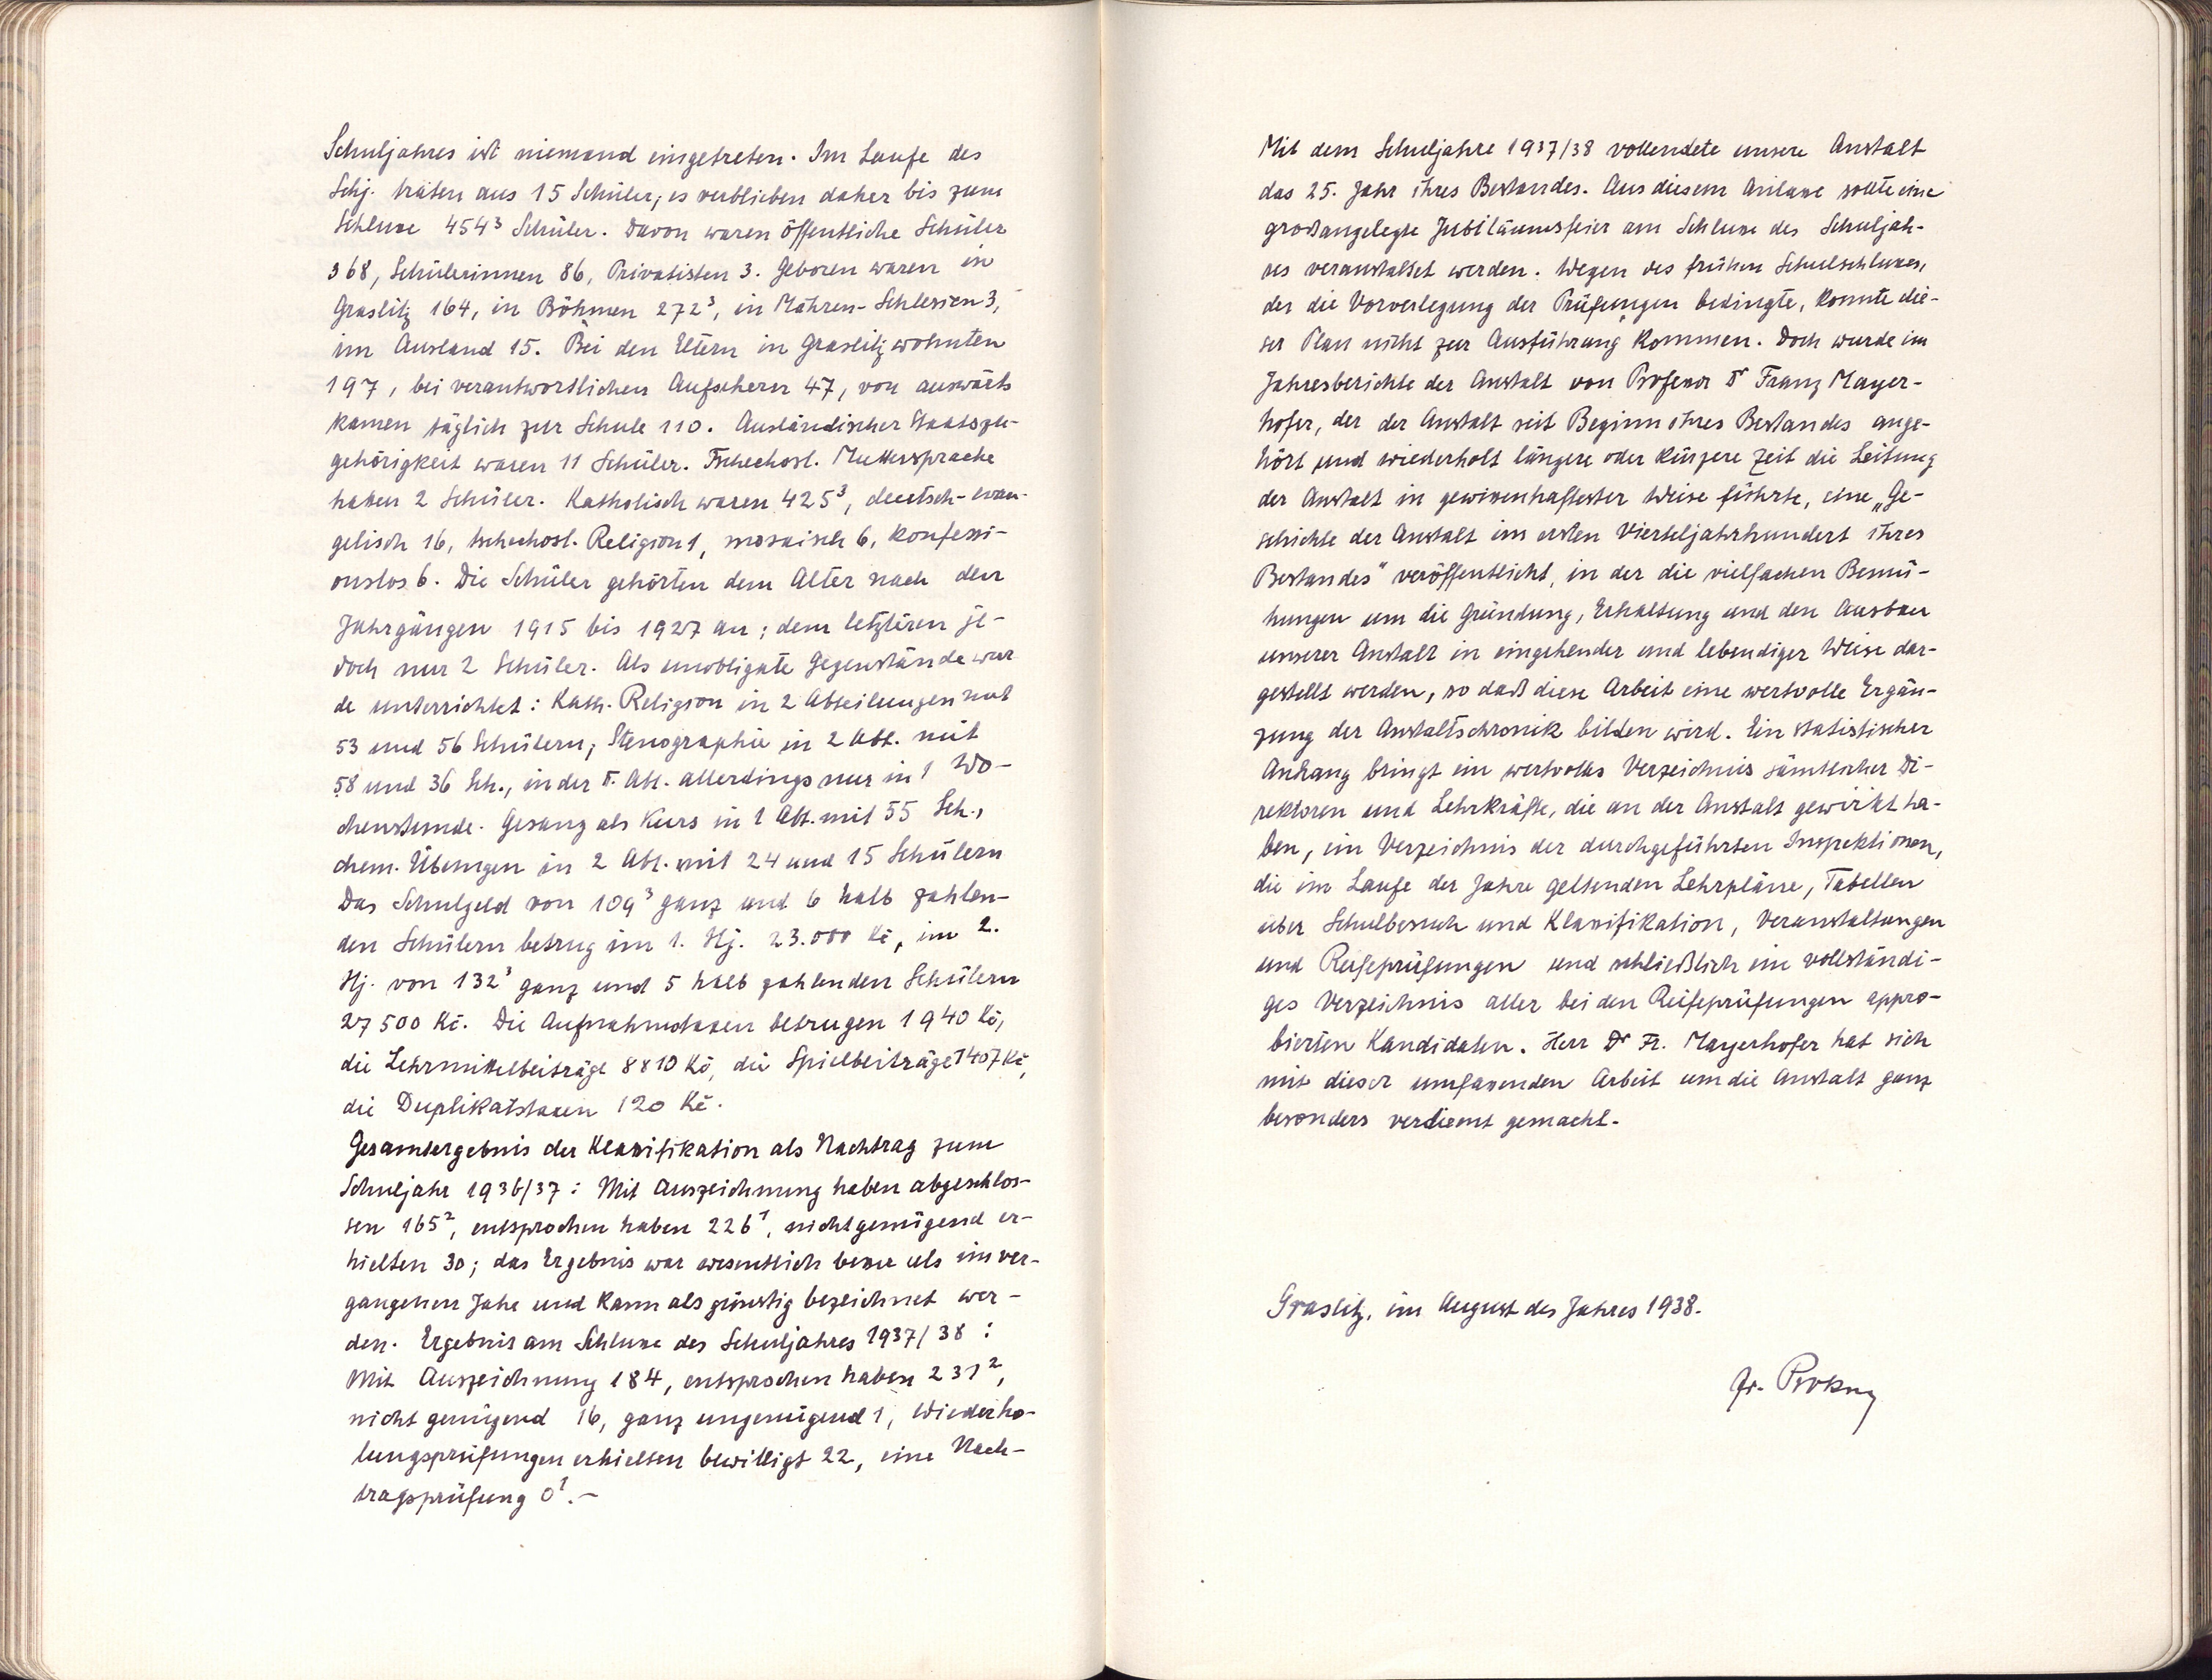 Schuljahres ist niemand eingetreten. Im Laufe des
Schj. traten aus 15 Schüler; es verblieben daher bis zum
Schlusse 454³ Schüler. Davon waren öffentliche Schüler
368, Schülerinnen 86, Privatisten 3. Geboren waren in
Graslitz 164, in Böhmen 272³, in Mähren-Schlesien 3,
im Ausland 15. Bei den Eltern in Graslitz wohnten
197, bei verantwortlichen Aufsehern 47, von auswärts
kamen täglich zur Schule 110. Ausländischer Staatszu-
gehörigkeit waren 11 Schüler. Tschechosl. Muttersprache
haben 2 Schüler. Katholisch waren 425³, deutsch-evan-
gelisch 16, tschechosl. Religion 1, mosaisch 6, konfessi-
onslos 6. Die Schüler gehörten dem Alter nach den
Jahrgängen 1915 bis 1927 an; dem letzteren je-
doch nur 2 Schüler. Als unobligate Gegenstände wur-
de unterrichtet: Kath. Religion in 2 Abteilungen mit
53 und 56 Schülern; Stenographie in 2 Abt. mit
58 und 36 Sch., in der II. Abt. allerdings nur in 1 Wo-
chenstunde. Gesang als Kurs in 1 Abt. mit 55 Sch.,
chem. Übungen in 2 Abt. mit 24 und 15 Schülern
Das Schulgeld von 109³ ganz und 6 halb zahlen-
den Schülern betrug im 1. Hj. 23.000 Kč, im 2.
Hj. von 132³ ganz und 5 halb zahlenden Schülern
27 500 Kč. Die Aufnahmstaxen betrugen 1940 Kč,
die Lehrmittelbeiträge 8810 Kč, die Spielbeiträge 1407 Kč,
die Duplikatstaxen 120 Kč.
Gesamtergebnis der Klassifikation als Nachtrag zum
Schuljahr 1936/37: Mit Auszeichnung haben abgeschlos-
sen 165², entsprochen haben 226¹, nichtgenügend er-
hielten 30; das Ergebnis war wesentlich besser als im ver-
gangenen Jahr und kann als günstig bezeichnet wer-
den. Ergebnis am Schlusse des Schuljahres 1937/38:
Mit Auszeichnung 184, entsprochen haben 231²,
nicht genügend 16, ganz ungenügend 1, Wiederho-
lungsprüfungen erhielten bewilligt 22, eine Nach-
tragsprüfung 0¹.-
Mit dem Schuljahre 1937/38 vollendete unsere Anstalt
das 25. Jahr ihres Bestandes. Aus diesem Anlasse sollte eine
großangelegte Jubiläumsfeier am Schlusse des Schuljah-
res veranstaltet werden. Wegen des frühen Schulschlusses,
der die Vorverlegung der Prüfungen bedingte, konnte die-
ser Plan nicht zur Ausführung kommen. Doch wurde im
Jahresberichte der Anstalt von Professor Dr Franz Mayer-
hofer, der der Anstalt seit Beginn ihres Bestandes ange-
hört und wiederholt längere oder kürzere Zeit die Leitung
der Anstalt in gewissenhaftester Weise führte, eine „Ge-
schichte der Anstalt im ersten Vierteljahrhundert ihres
Bestandes" veröffentlicht, in der die vielfachen Bemü-
hungen um die Gründung, Erhaltung und den Ausbau
unserer Anstalt in eingehender und lebendiger Weise dar-
gestellt werden, so daß diese Arbeit eine wertvolle Ergän-
zung der Anstaltschronik bilden wird. Ein statistischer
Anhang bringt ein wertvolles Verzeichnis sämtlicher Di-
rektoren und Lehrkräfte, die an der Anstalt gewirkt ha-
ben, ein Verzeichnis der durchgeführten Inspektionen,
die im Laufe der Jahre geltenden Lehrpläne, Tabellen
über Schulbesuch und Klassifikation, Veranstaltungen
und Reifeprüfungen und schließlich ein vollständi-
ges Verzeichnis aller bei den Reifeprüfungen appro-
bierten Kandidaten. Herr Dr Fr. Mayerhofer hat sich
mit dieser umfassenden Arbeit um die Anstalt ganz
besonders verdient gemacht.
Graslitz, im August des Jahres 1938.